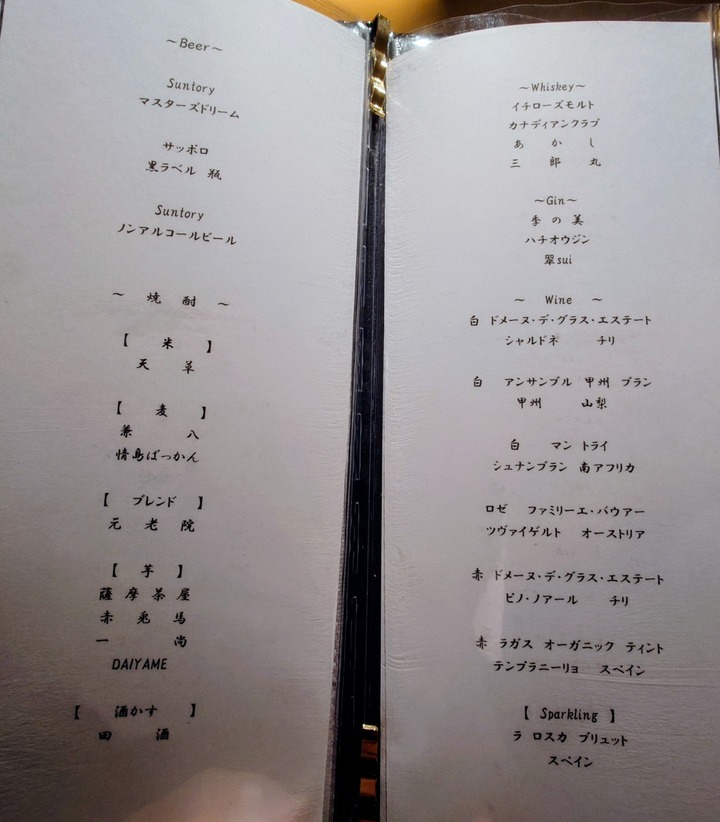 ~Beer~
Suntory
マスターズドリーム
サッポロ
黒ラベル 瓶
Suntory
ノンアルコールビール
~ 焼 酎 ~
【 米 】
天 草
【 麦 】
兼 八
情島ばっかん
【 ブレンド 】
元 老 院
【 芋 】
薩 摩 茶 屋
赤 兎 馬
一 尚
DAIYAME
【 酒かす 】
田 酒
~Whiskey~
イチローズモルト
カナディアンクラブ
あ か し
三 郎 丸
~Gin~
季 の 美
ハチオウジン
翠sui
~ Wine ~
白 ドメーヌ・デ・グラス・エステート
シャルドネ チリ
白 アンサンブル 甲州 ブラン
甲州 山梨
白 マン トライ
シュナンブラン 南アフリカ
ロゼ ファミリーエ・バウアー
ツヴァイゲルト オーストリア
赤 ドメーヌ・デ・グラス・エステート
ピノ・ノアール チリ
赤 ラガス オーガニック ティント
テンプラニーリョ スペイン
【 Sparkling 】
ラ ロスカ ブリュット
スペイン